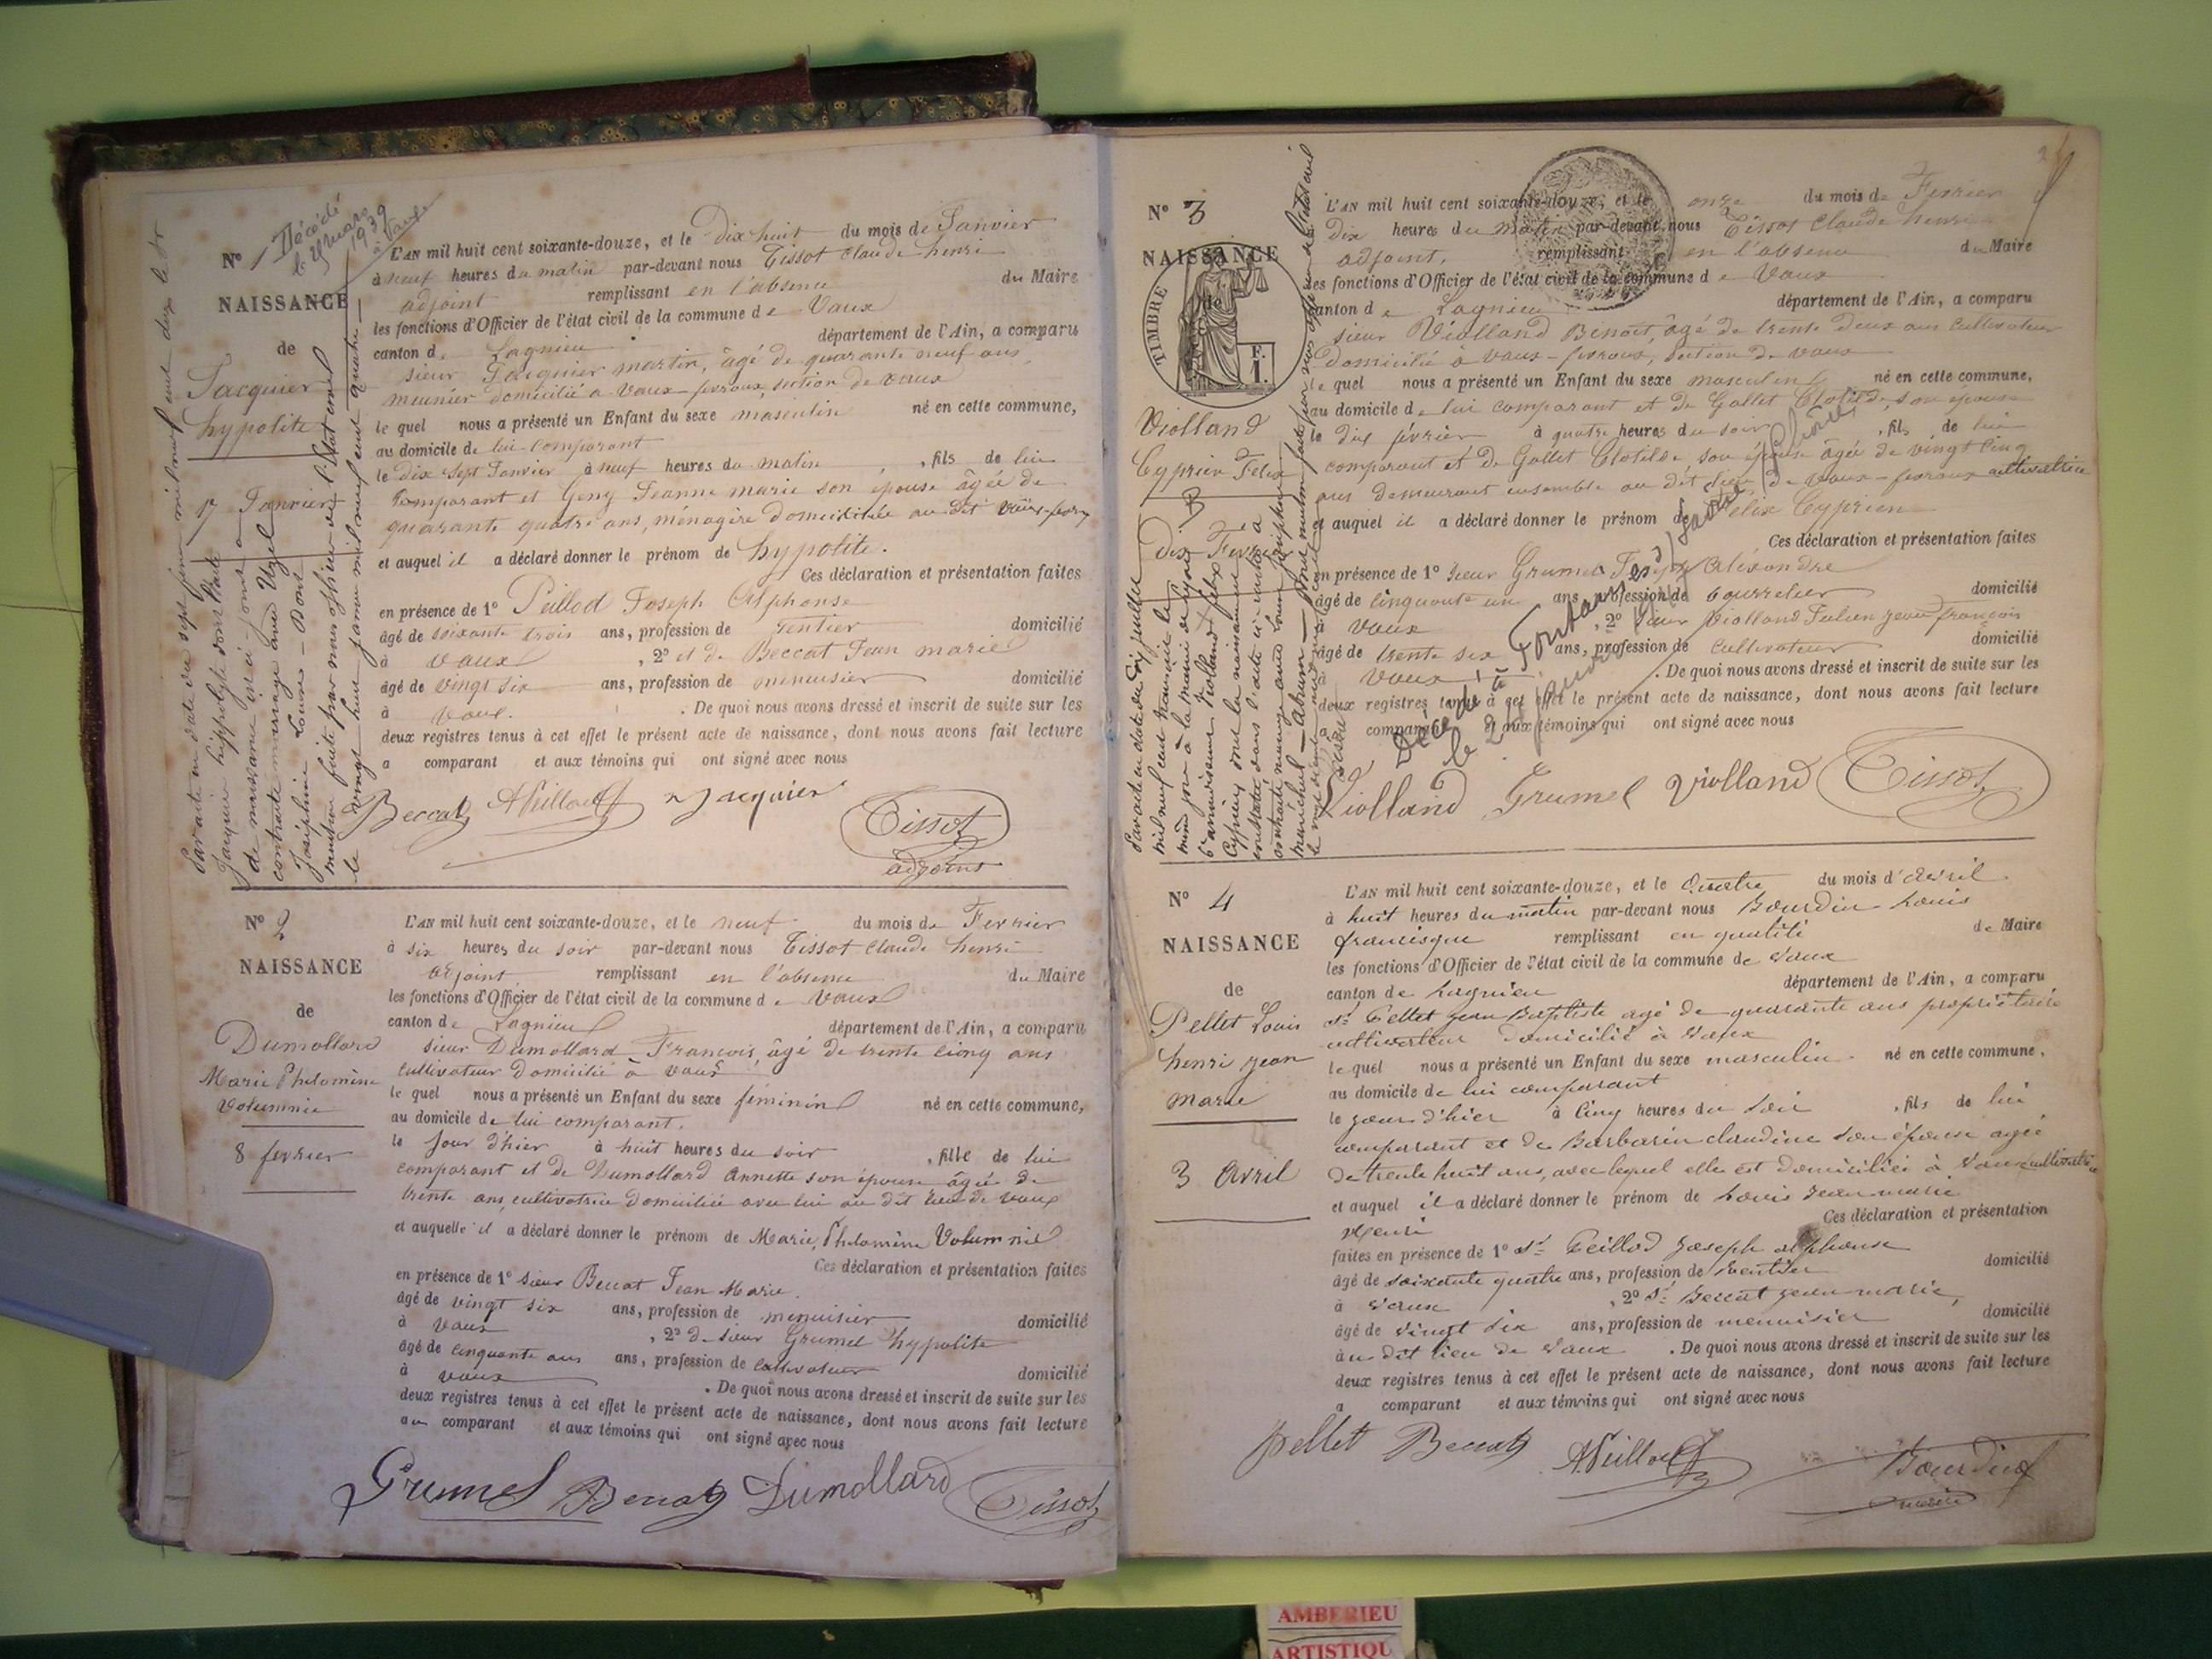 N° 1
Décédé
1939
à Vaux
NAISSANCE
de
Jacquier
hypolite
17 Janvier
L'AN mil huit cent soixante-douze, et le Dix huit du mois de Janvier
à neuf heures du matin par-devant nous Tissot Claude henri
adjoint remplissant en l'absence du Maire
les fonctions d'Officier de l'état civil de la commune de Vaux
canton de Lagnieu département de l'Ain, a comparu
sieur Jacquier martin, âgé de quarante neuf ans
meunier domicilié a Vaux-fevroux, section de vaux
le quel nous a présenté un Enfant du sexe masculin né en cette commune,
au domicile de lui comparant
le dix sept Janvier à neuf heures du matin, fils de lui
comparant et Geny Jeanne marie son épouse âgée de
quarante quatre ans, ménagère domiciliée au dit
et auquel il a déclaré donner le prénom de hypolite.
Ces déclaration et présentation faites
en présence de 1° Peillod Joseph Alphonse
âgé de soixante trois ans, profession de rentier domicilié
à vaux, 2° et de Beccat Jean marie
âgé de vingt six ans, profession de menuisier domicilié
à vaux. De quoi nous avons dressé et inscrit de suite sur les
deux registres tenus à cet effet le présent acte de naissance, dont nous avons fait lecture
a comparant et aux témoins qui ont signé avec nous
Beccat APeillod Jacquier
Tissot
adjoint
N° 2
NAISSANCE
de
Dumollard
Marie Philomène
Volumnie
8 fevrier
L'AN mil huit cent soixante-douze, et le neuf du mois de Fevrier
à six heures du soir par-devant nous Tissot Claude henri
adjoint remplissant en l'absence du Maire
les fonctions d'Officier de l'état civil de la commune de Vaux
canton de Lagnieu département de l'Ain, a comparu
sieur Dumollard François, âgé de trente cinq ans
cultivateur domicilié à vaux
le quel nous a présenté un Enfant du sexe féminin né en cette commune,
au domicile de lui comparant.
le jour d'hier à huit heures du soir, fille de lui
comparant et de Dumollard Annette son épouse âgée de
trente ans, cultivatrice domiciliée avec lui au dit lieu de vaux
et auquelle il a déclaré donner le prénom de Marie, Philomène Volumnie
Ces déclaration et présentation faites
en présence de 1° sieur Beccat Jean Marie
âgé de vingt six ans, profession de menuisier domicilié
à vaux, 2° de sieur Grumel hyppolite
âgé de cinquante ans ans, profession de cultivateur domicilié
à vaux. De quoi nous avons dressé et inscrit de suite sur les
deux registres tenus à cet effet le présent acte de naissance, dont nous avons fait lecture
au comparant et aux témoins qui ont signé avec nous
Grumel Beccat Dumollard Tissot
N° 3
NAISSANCE
de
TIMBRE
F.
1.
Violland
Cyprien Felix
L'AN mil huit cent soixante-douze, et le onze du mois de Fevrier
Dix heures du matin par-devant nous Tissot Claude henri
adjoint, remplissant en l'absence du Maire
les fonctions d'Officier de l'état civil de la commune de Vaux
canton de Lagnieu département de l'Ain, a comparu
sieur Violland Benoit, âgé de trente deux ans cultivateur
Domicilié à Vaux-fevroux, section de vaux
le quel nous a présenté un Enfant du sexe masculin né en cette commune,
au domicile de lui comparant et de Gallet Clotilde, son épouse
le dix février à quatre heures du soir, fils de lui
comparant et de Gallet Clotilde son épouse âgée de vingt cinq
ans demeurant ensemble au dit lieu de Vaux-fevroux cultivatrice
et auquel il a déclaré donner le prénom de Felix Cyprien
Ces déclaration et présentation faites
en présence de 1° sieur Grumel Alexandre
âgé de cinquante un ans, profession de bourrelier domicilié
vaux, 2° sieur Violland Julien Jean françois
âgé de trente six ans, profession de cultivateur domicilié
à vaux. De quoi nous avons dressé et inscrit de suite sur les
deux registres tenus à cet effet le présent acte de naissance, dont nous avons fait lecture
a comparant et aux témoins qui ont signé avec nous
Violland Grumel Violland Tissot
N° 4
NAISSANCE
de
Pellet Louis
henri jean
marie
3 Avril
L'AN mil huit cent soixante-douze, et le Quatre du mois d'Avril
à huit heures du matin par-devant nous Bourdin Louis
francisque remplissant en qualité de Maire
les fonctions d'Officier de l'état civil de la commune de Vaux
canton de Lagnieu département de l'Ain, a comparu
sr Pellet jean Baptiste agé de quarante ans propriétaire
cultivateur domicilié à Vaux
le quel nous a présenté un Enfant du sexe masculin né en cette commune,
au domicile de lui comparant
le jour d'hier à cinq heures du soir, fils de lui
comparant et de Barbarin claudine son épouse agée
de trente huit ans, avec lequel elle est domiciliée à Vaux, cultivatrice
et auquel il a déclaré donner le prénom de Louis jean marie
Henri Ces déclaration et présentation
faites en présence de 1° sr Peillod Joseph alphonse
âgé de soixante quatre ans, profession de rentier domicilié
à Vaux, 2° sr Beccat jean marie,
âgé de vingt six ans, profession de menuisier domicilié
au dit lieu de Vaux. De quoi nous avons dressé et inscrit de suite sur les
deux registres tenus à cet effet le présent acte de naissance, dont nous avons fait lecture
a comparant et aux témoins qui ont signé avec nous
Pellet Beccat APeillod Bourdin
maire
AMBERIEU
ARTISTIQU